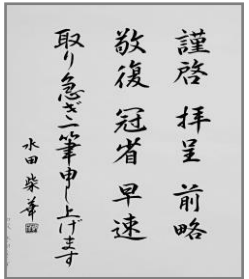 謹啓 拝呈 前略
敬復 冠省 早速
取り急ぎ一筆申し上げます
水田 柴華